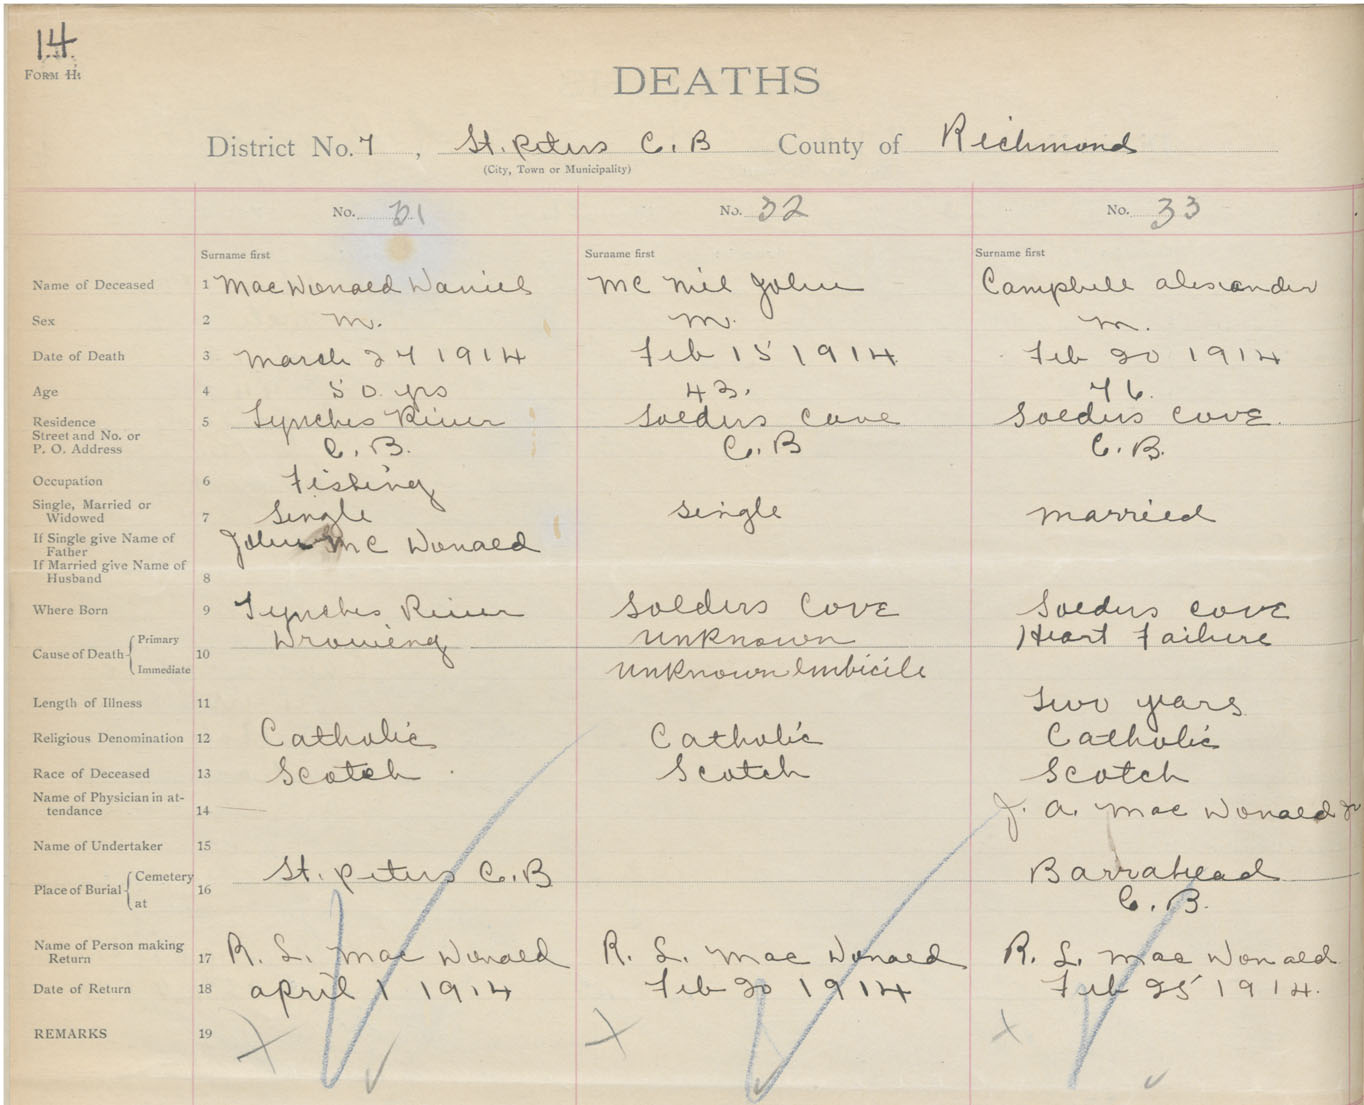 14
FORM H
DEATHS
District No. 7, St. Peters C. B County of Richmond
(City, Town or Municipality)
No. 31 No. 32 No. 33
Surname first Surname first Surname first
Name of Deceased 1 MacDonald Daniel Mc Neil John Campbell alexander
Sex 2 m. m. m.
Date of Death 3 March 27 1914 Feb 15 1914 Feb 20 1914
Age 4 50 yrs 43. 76.
Residence 5 Lynches River Solders Cove Solders Cove
Street and No. or
P. O. Address C. B. C. B C. B.
Occupation 6 Fishing
Single, Married or
Widowed 7 Single Single Married
If Single give Name of
Father John Mc Donald
If Married give Name of
Husband 8
Where Born 9 Lynches River Solders Cove Solders cove
Cause of Death 10 Primary Drowing unknown Heart Failure
Immediate unknown Imbicile
Length of Illness 11 Two years
Religious Denomination 12 Catholic Catholic Catholic
Race of Deceased 13 Scotch Scotch Scotch
Name of Physician in at-
tendance 14 J. A. Mac Donald Jr
Name of Undertaker 15
Place of Burial 16 Cemetery St. Peters C. B Barrahead
at C. B.
Name of Person making
Return 17 R. L. Mac Donald R. L. Mac Donald R. L. Mac Donald
Date of Return 18 april 1 1914 Feb 20 1914 Feb 25 1914.
REMARKS 19